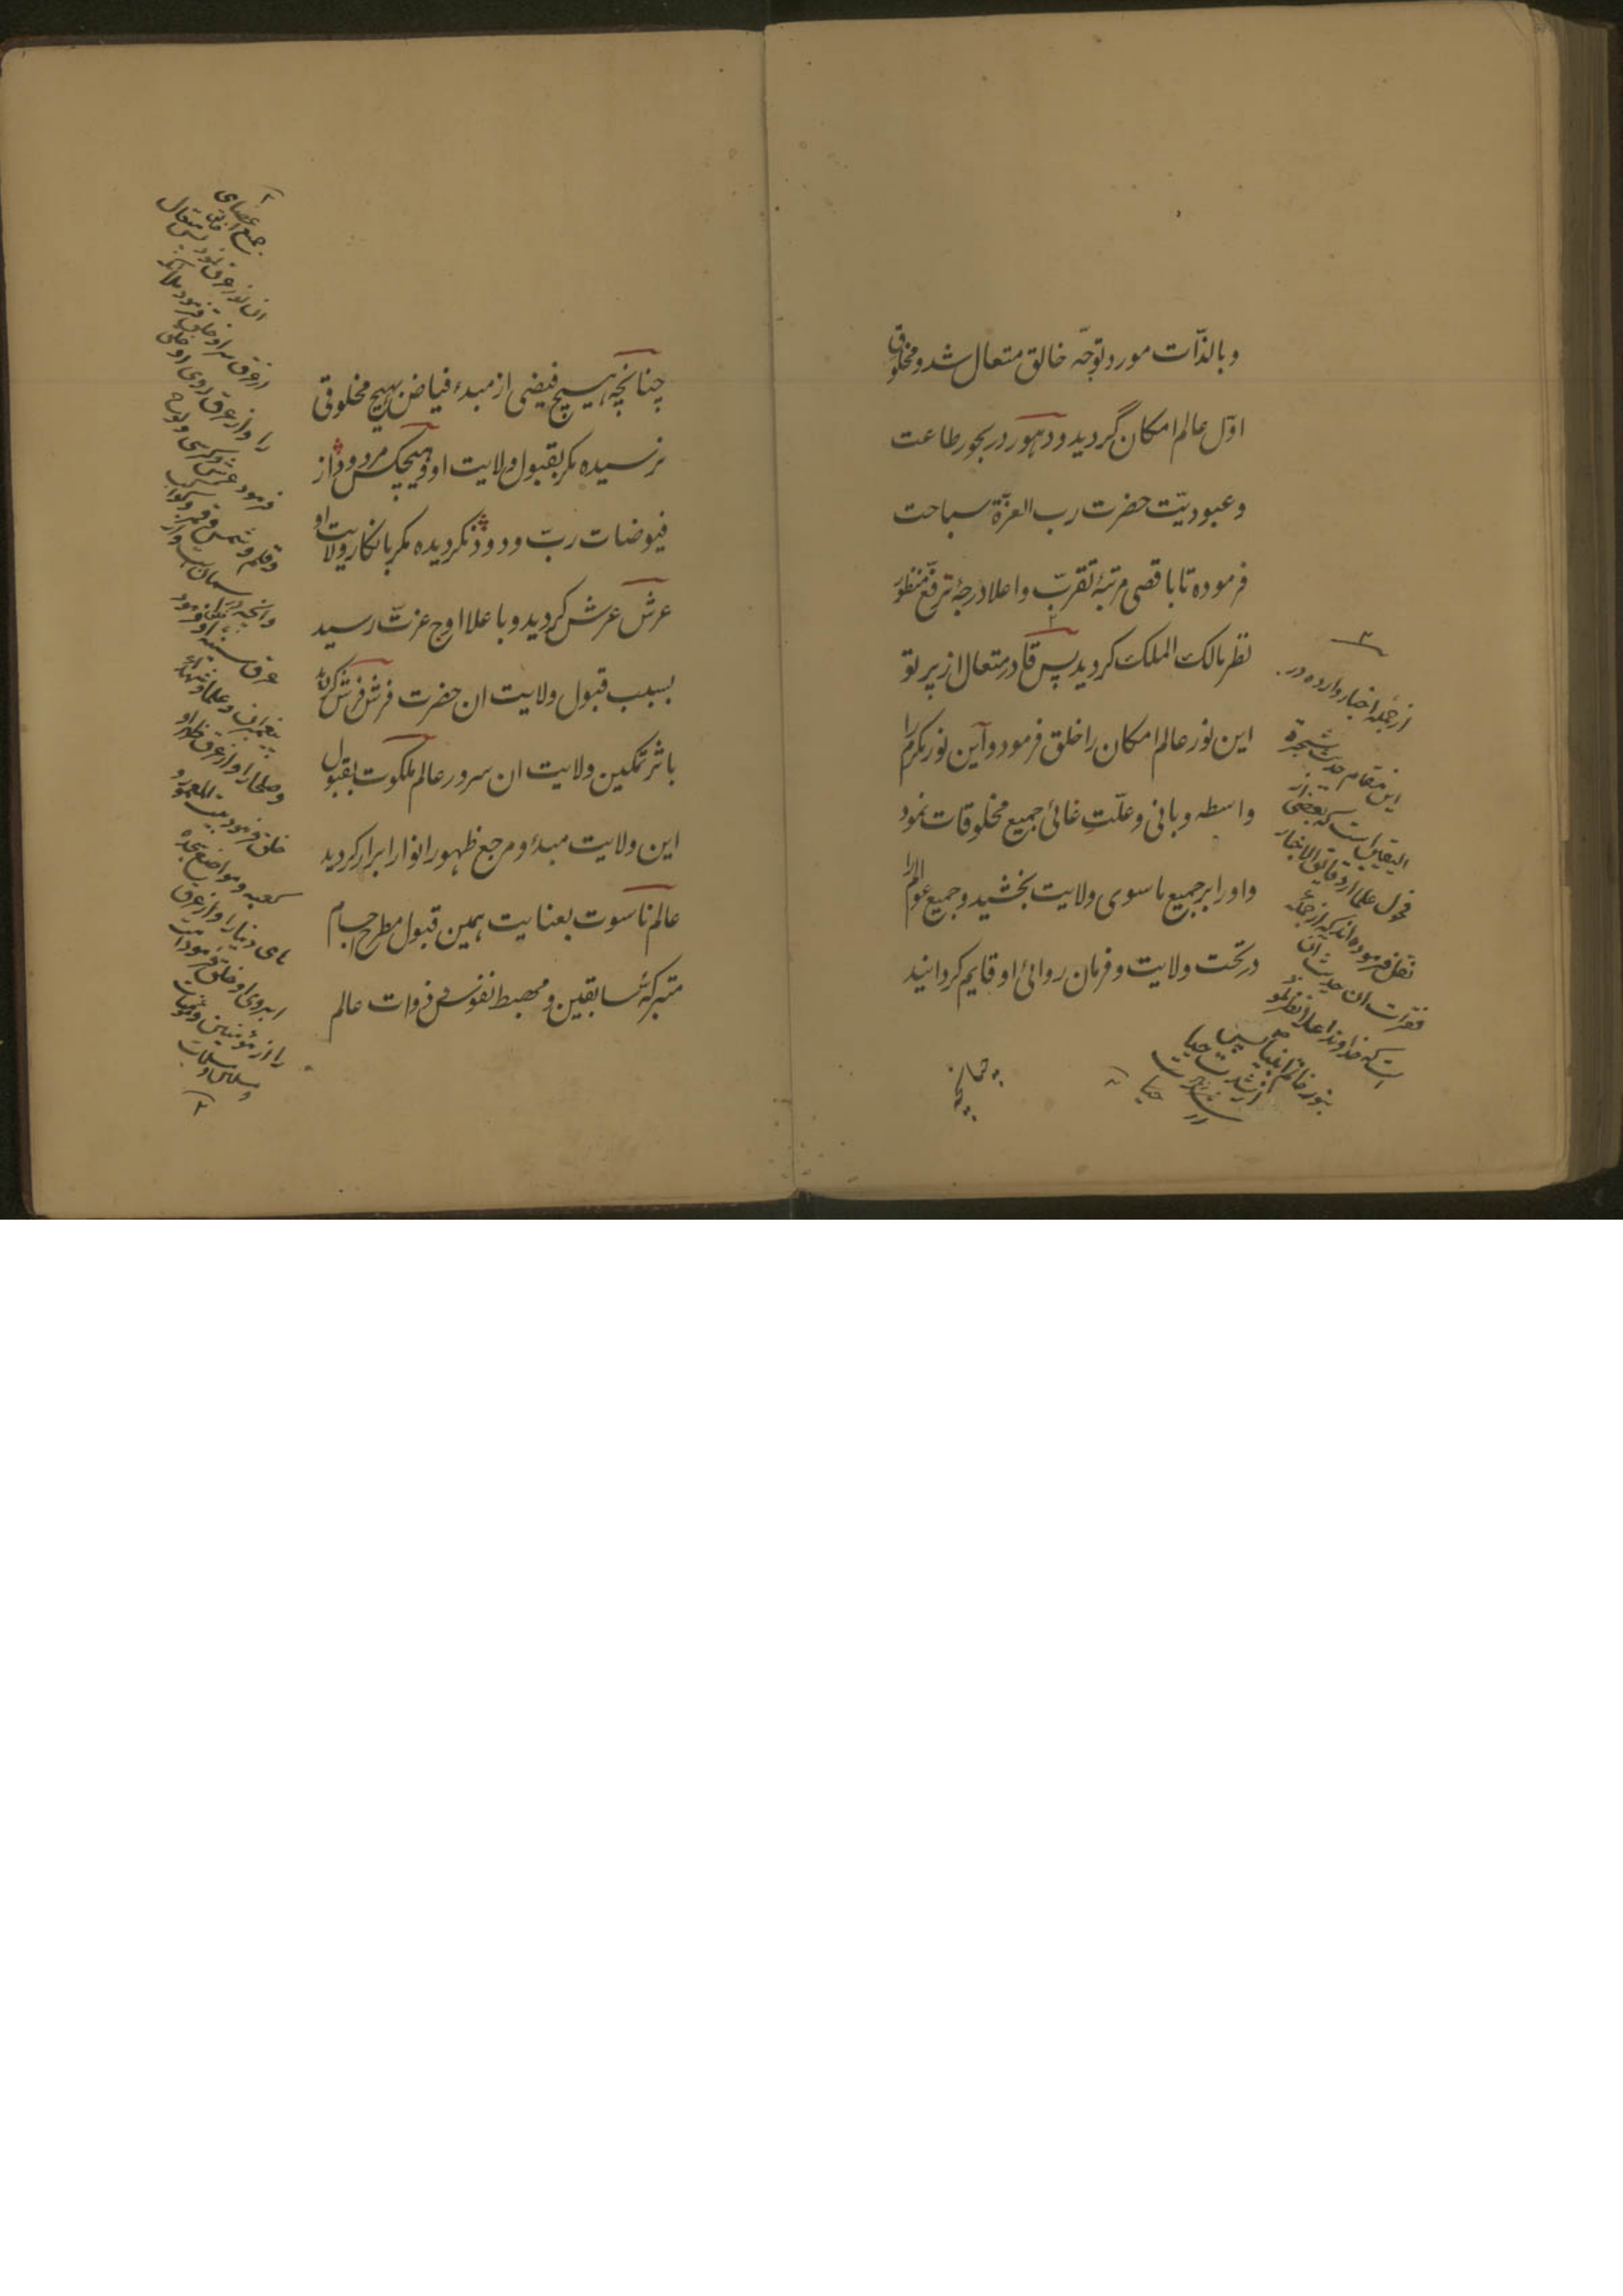 و بالذّات مورد توجّه خالق متعال شد و مخلوق
اوّل عالم امکان گردید و دهور در بحور طاعت
و عبودیّت حضرت رب العزّة سباحت
فرموده تا باقصی مرتبهٔ تقرّب و اعلا درجهٔ ترفّع منظور
نظر مالک الملک کردید پس قادر متعال از پرتو
این نور عالم امکان را خلق فرمود و آین نور مکرم را
واسطه و بانی و علّت غائی جمیع مخلوقات نمود
و او را بر جمیع ماسوی ولایت بخشید و جمیع عوالم را
در تحت ولایت و فرمان روائی او قایم کردانید
چنانچه
۳
از جمله اخبار وارده در
این مقام حدیث شجرة
الیقین است که بعضی از
فحول علما از دقایق الاخبار
نقل فرموده‌اند که از جمله
فقرات ان حدیث ان
است که خداوند اعلا نظر نمود
بنور خاتم انبیا پس
از شدت حیا
حیا
چنانچه هیسچ فیضی از مبدء فیاض بهیچ مخلوقی
نرسیده مکر بقبول ولایت او و هیچکس مردود از
فیوضات ربّ ودود نکردیده مکر بانکار ولایت او
عرش عرش کردید و باعلا اوج عزّت رسید
بسبب قبول ولایت ان حضرت فرش فرش کردید
باثر تمکین ولایت ان سرور عالم ملکوت بقبول
این ولایت مبدء و مرجع ظهور انوار ابرار کردید
عالم ناسوت بعنایت همین قبول مطرح اجسام
متبرکهٔ سابقین و مهبط نفوس ذوات عالم
جمیع اعضای
ان نور عرق نمود پس متعال
از عرق سر او خلق فرمود ملائکه
را و از عرق روی او خلق
فرمود عرش و کرسی و لوح
و قلم و شمس و قمر و کواکب
و انچه در اسمان است و از
عرق سینه او فرمود
پیغمبران و علما و شهدا
و صلحا را و از عرق ظهر او
خلق فرمود بیت المعمور و
کعبه و مواضع سجده
های دنیا را و از عرق
ابروی او خلق فرمود امت
را از مؤمنین و مؤمنات
و مسلمین و مسلمات